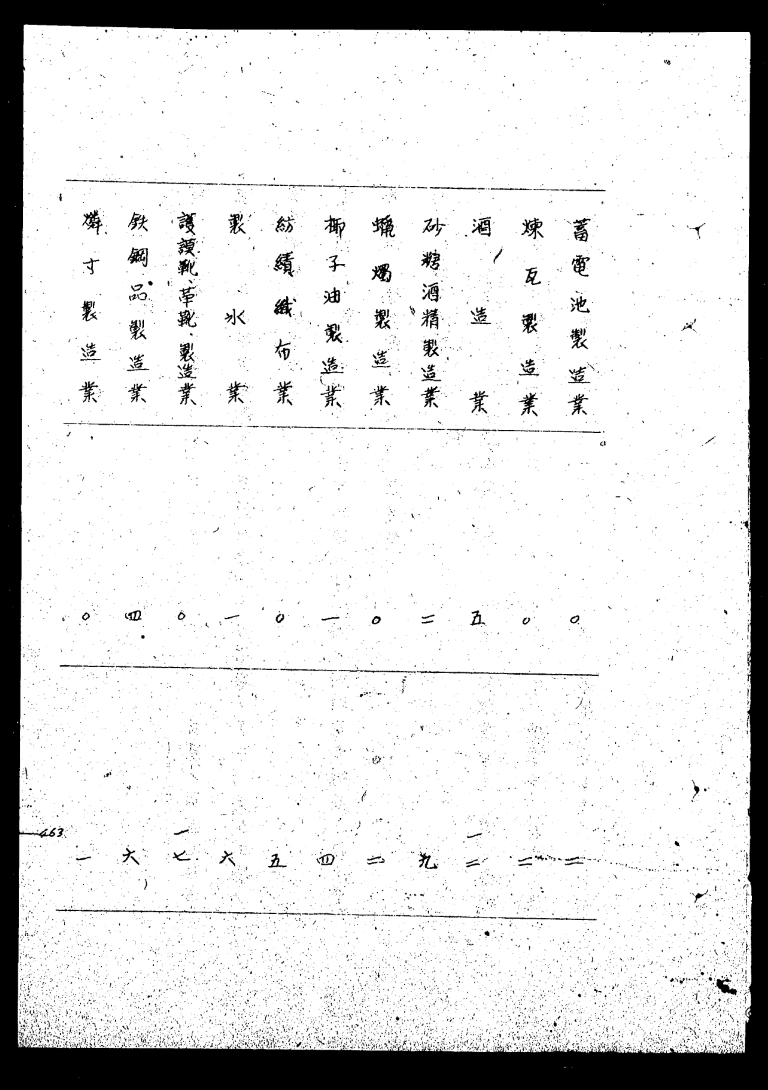 蓄電池製造業 〇 二
煉瓦製造業 〇 二
酒造業 五 一二
砂糖酒精製造業 二 九
蝋燭製造業 〇 二
椰子油製造業 一 四
紡績織布業 〇 五
製氷業 一 六
護謨靴、革靴、製造業 〇 一七
鉄鋼品製造業 四 六
燐寸製造業 〇 一
463